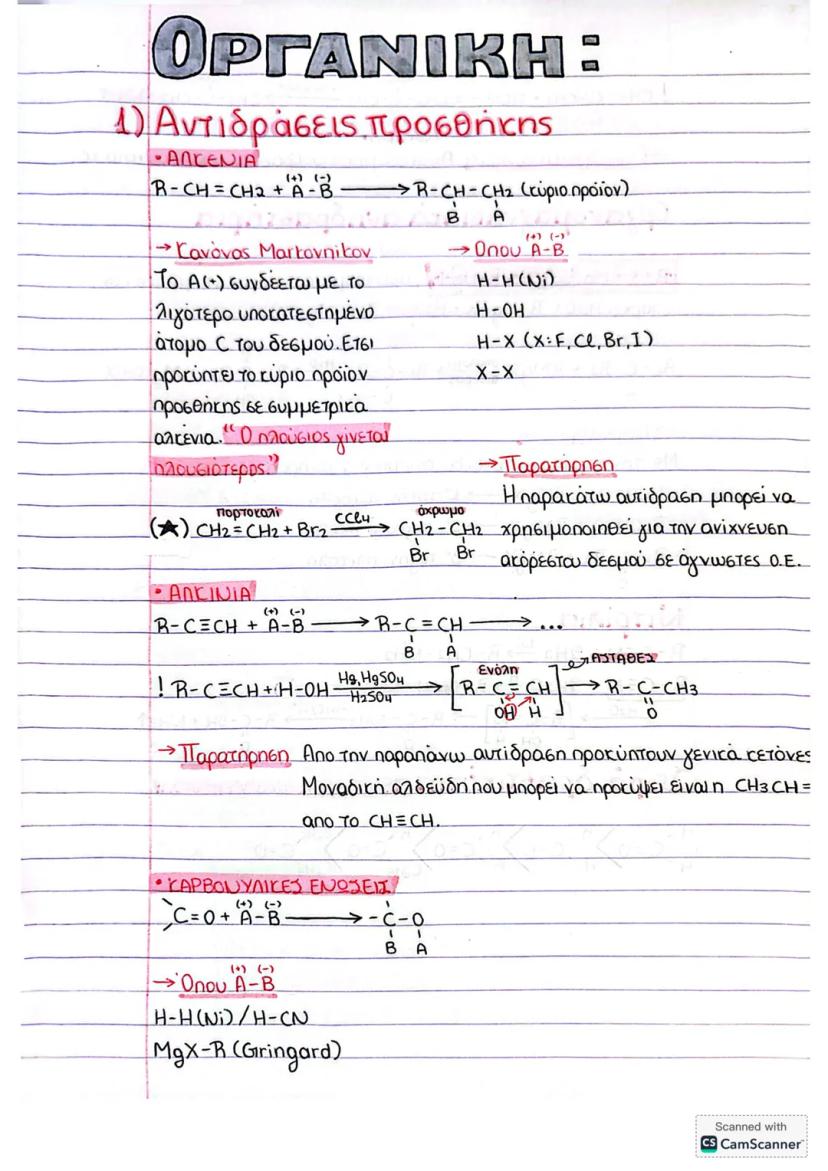 ΟΡΓΑΝΙΚΗ:
1) Αντιδράσεις προσθήκης
• ΑΛΚΕΝΙΑ
(+) (-)
R-CH=CH2 + A-B → R-CH-CH2 (κύριο προϊόν)
B A
→ Κανόνας Markovnikov
Το A(+) συνδέεται με το
λιγότερο υποκατεστημένο
άτομο C του δεσμού. Έτσι
προκύπτει το κύριο προϊόν
προσθήκης σε συμμετρικά
αλκένια. "Ο πλούσιος γίνεται
πλουσιότερος."
(+) (-)
→ Όπου A-B
H-H (Ni)
H-OH
H-X (X: F, Cl, Br, I)
X-X
πορτοκαλί άχρωμο
(★) CH2=CH2 + Br2 CCl4→ CH2-CH2
Br Br
→ Παρατήρηση
Η παρακάτω αντίδραση μπορεί να
χρησιμοποιηθεί για την ανίχνευση
ακόρεστου δεσμού σε άγνωστες Ο.Ε.
• ΑΛΚΙΝΙΑ
(+) (-)
R-C≡CH + A-B → R-C=CH → ...
B A
Ενόλη ΑΣΤΑΘΕΣ
! R-C≡CH + H-OH Hg, HgSO4 / H2SO4→ [R-C=CH] → R-C-CH3
OH H O
→ Παρατήρηση Από την παραπάνω αντίδραση προκύπτουν γενικά κετόνες
Μοναδική αλδεΰδη που μπορεί να προκύψει είναι η CH3CH=
απο το CH≡CH.
• ΚΑΡΒΟΝΥΛΙΚΕΣ ΕΝΩΣΕΙΣ
(+) (-)
C=O + A-B → -C-O
B A
(+) (-)
→ Όπου A-B
H-H (Ni) / H-CN
MgX-R (Gringard)
Scanned with
CS CamScanner